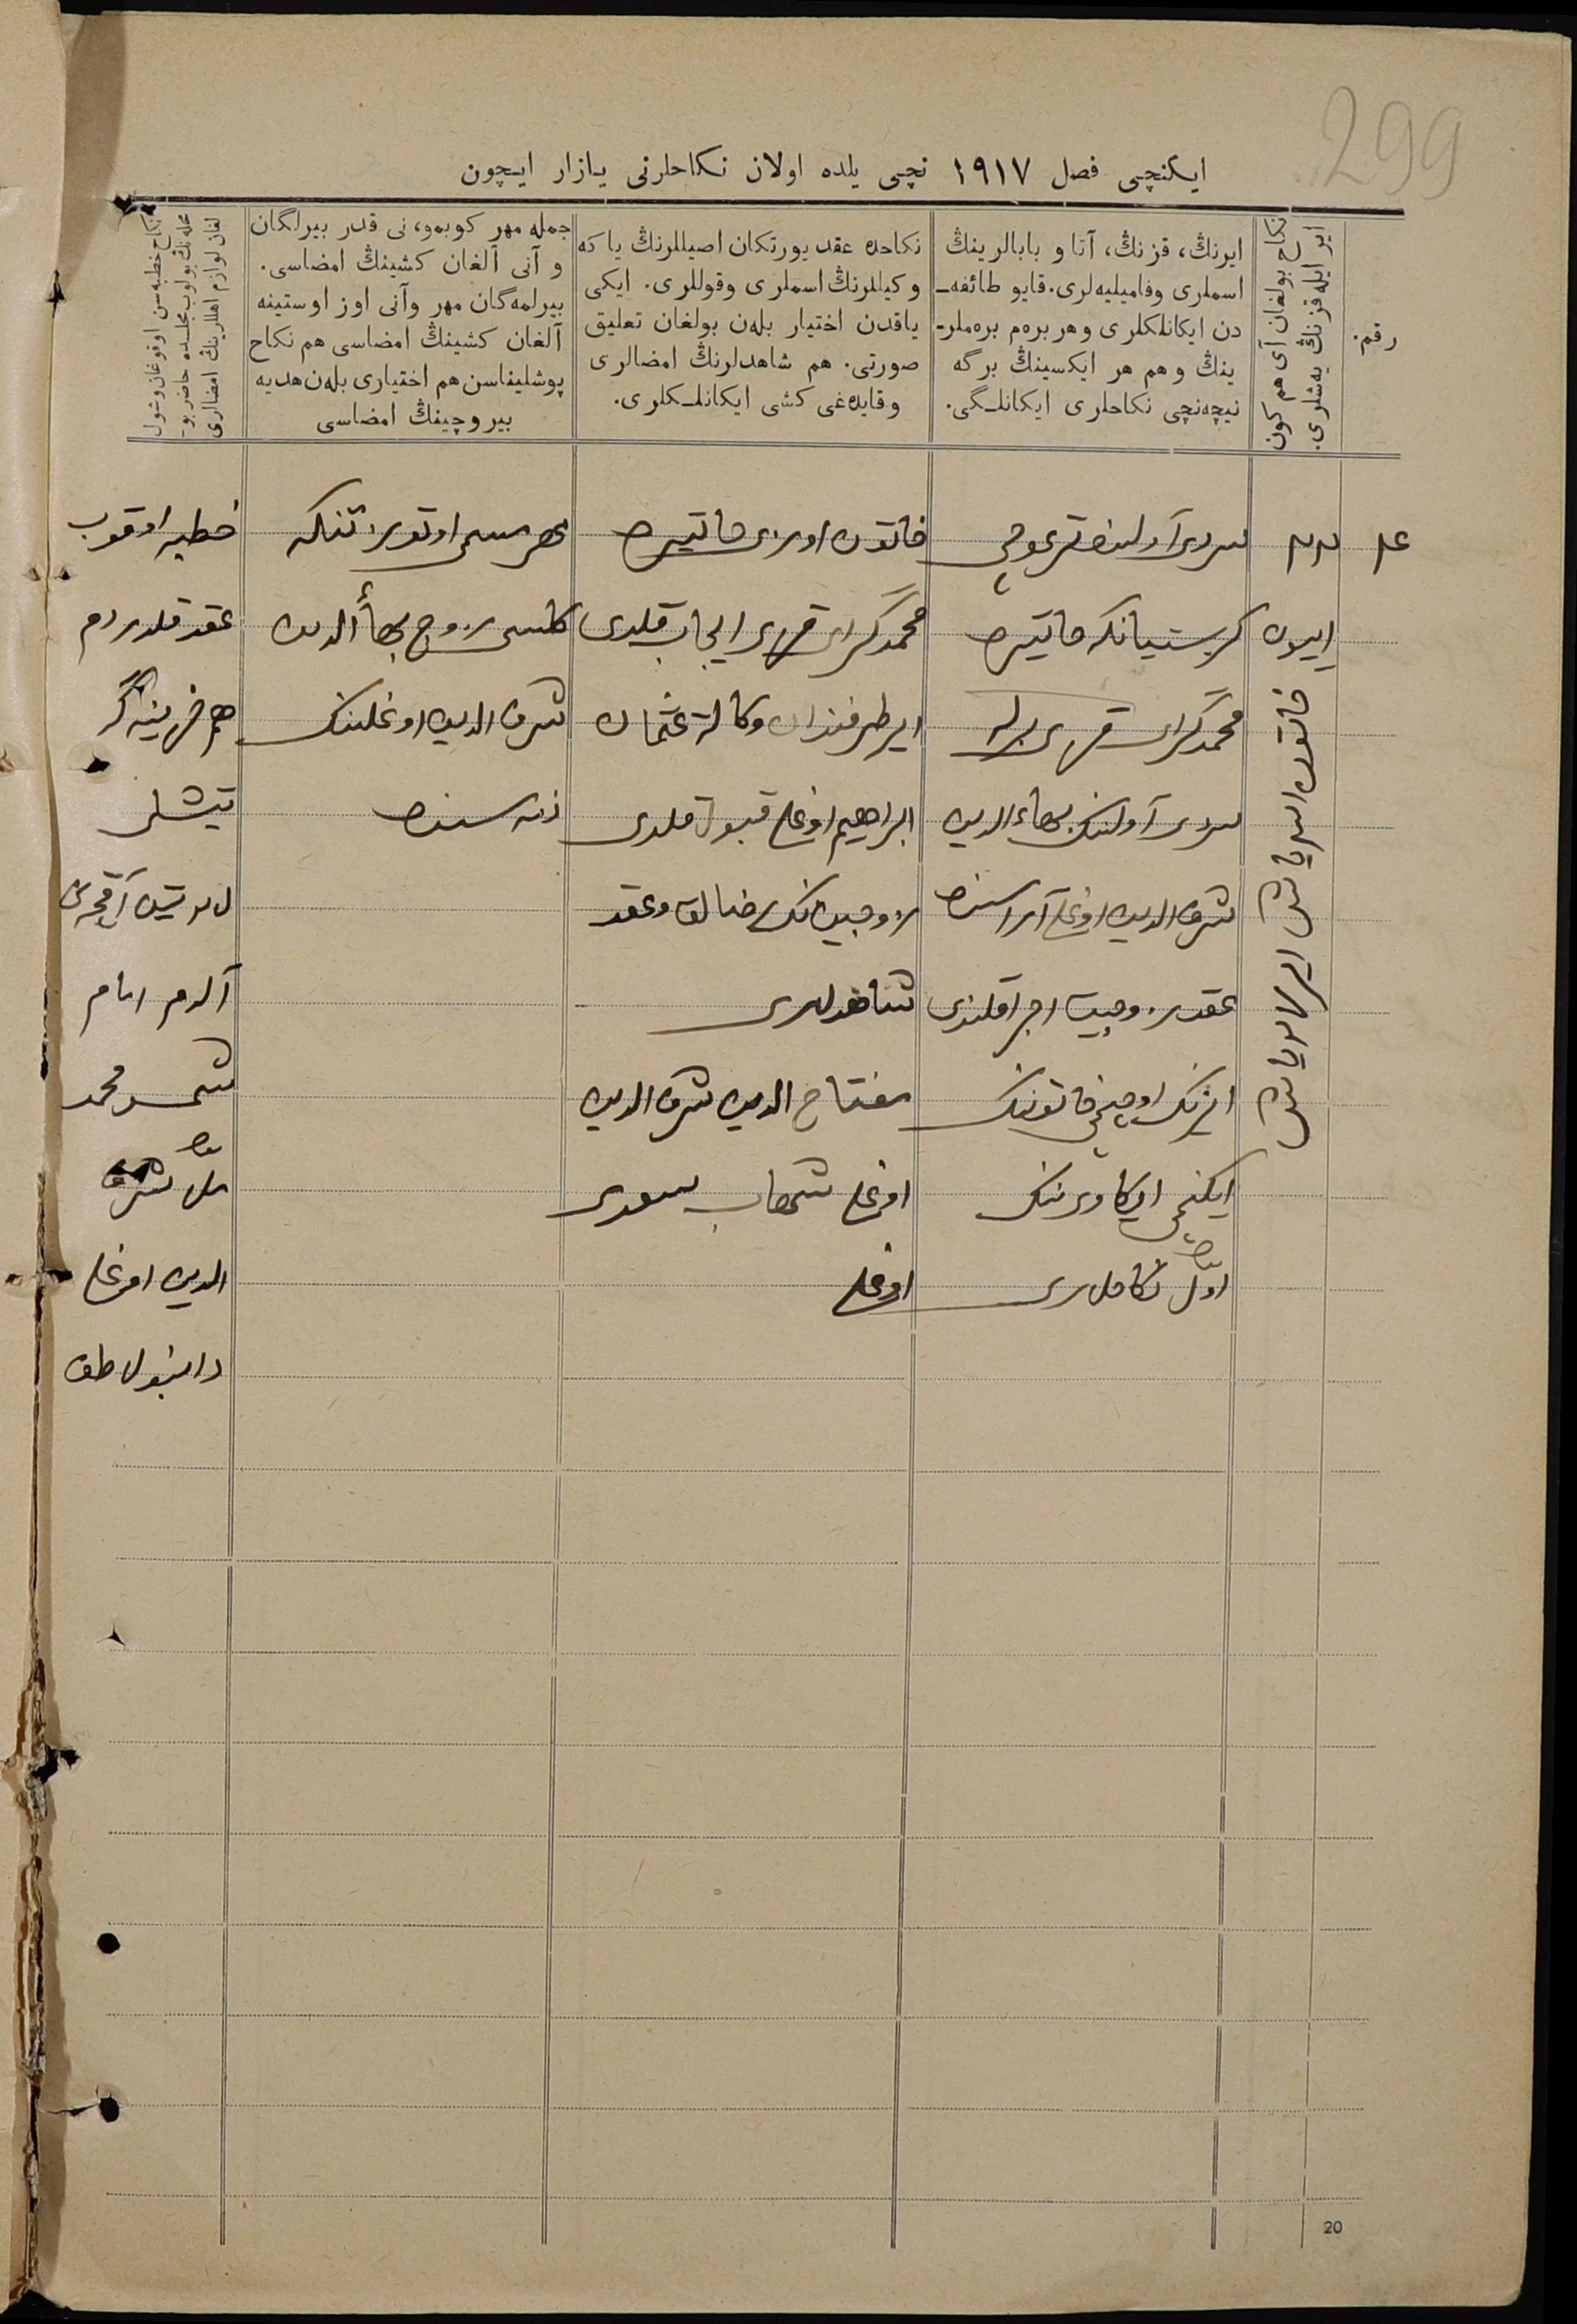 299
ایکنچی فصل ١٩١٧ نچی یلده اولان نکاحلرنی یازار ایچون
رقم.
نکاح بولغان آی هم کون
ایر ایله قزنڭ یەشلری.
ایرنڭ، قزنڭ، آتا و بابالرینڭ
اسملری وفامیلیەلری. قایو طائفه‌ـ
دن ایکانلکلری وهر برەم برەملر‌ـ
ینڭ وهم هر ایکسینڭ برگه
نیچەنچی نکاحلری ایکانلـگی.
نکاحده عقد یورتکان اصیللرنڭ یا که
وکیللرنڭ اسملری وقوللری. ایکی
یاقدن اختیار بلەن بولغان تعلیق
صورتی. هم شاهدلرنڭ امضالری
وقایدەغی کشی ایکانلـکلری.
جمله مهر کوبمو، نی قدر بیرلگان
و آنی آلغان کشینڭ امضاسی.
بیرلمەگان مهر وآنی اوز اوستینه
آلغان کشینڭ امضاسی هم نکاح
پوشلیناسن هم اختیاری بلەن هدیه
بیروچینڭ امضاسی
نکاح خطبەسن اوقوغان وشول
محلەنڭ بولوب مجلسده حاضر بو‌ـ
لغان لوازم اهللرینڭ امضالری
اییون
خاتون
یاش ایر
یاش
کریستیانکه ماتیره
محمدگرای قزی برله
آولنڭ بهاء الدین
شرف الدین اوغلی آراسنده
عقد زوجیت اجرا قلندی
ایرنڭ اوچنچی خاتوننڭ
ایکنچی ایکاوی‌نڭ
اوّل نکاحلری
خاتون اوزی ماتیره
محمدگرای قزی ایجاب قلدی
ایر طرفندان وکالة عثمان
ابراهیم اوغلی قبول قلدی
زوجین‌نڭ رضالق وعقد
شاهدلری
مفتاح الدین شرف الدین
اوغلی شهاب سعدی
اوغلی
مهر مسمی اوتوز تنکه
کلسی زوج بهاء الدین
شرف الدین اوغلیننڭ
ذمه سنده
خطبه اوقوب
عقد قلدردم
هم خزینه گه
تیشلی
تین آقچه‌نی
آلدم امام
شمس محمد
ملا شرف
الدین اوغلی
20